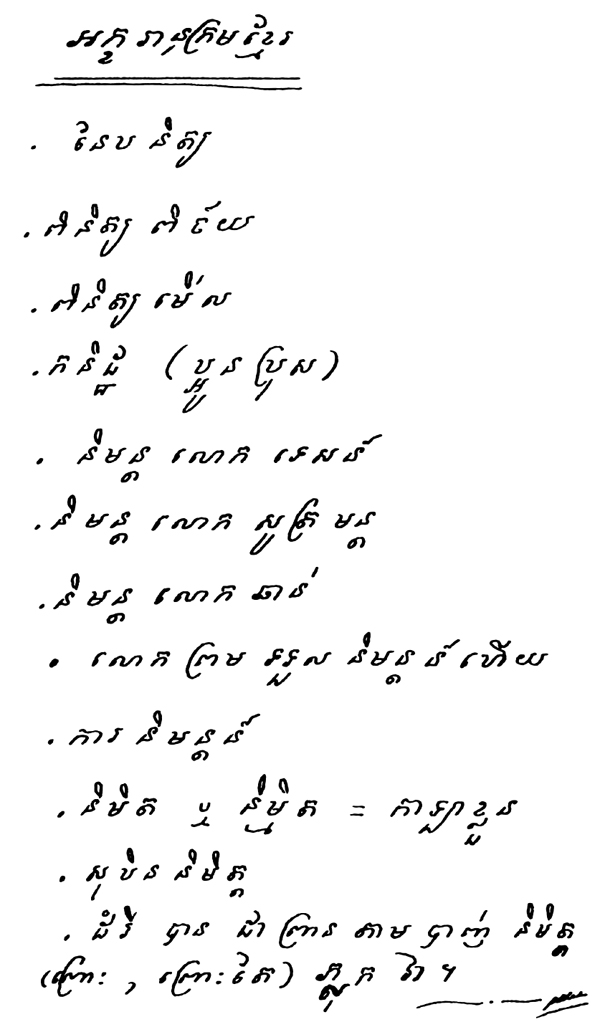 អក្ខរានុក្រមខ្មែរ
. នែប និត្យ
. ពិនិត្យ ពិច័យ
. ពិនិត្យ មើល
. កនិដ្ឋ (ប្អូន ប្រុស)
. និមន្ត លោក ទេសន៍
. និមន្ត លោក សូត្រ មន្ត
. និមន្ត លោក ឆាន់
. លោក ព្រម ទទួល និមន្តន៍ ហើយ
. ការ និមន្តន៍
. និមិត ឬ និម្មិត = កាឡាខ្លួន
. សុបិន និមិត្ត
. ដំរី បាន ជា ព្រាន តាម បាញ់ និមិត្ត
(ព្រោះ , ព្រោះតែ) ភ្លុក វា ។